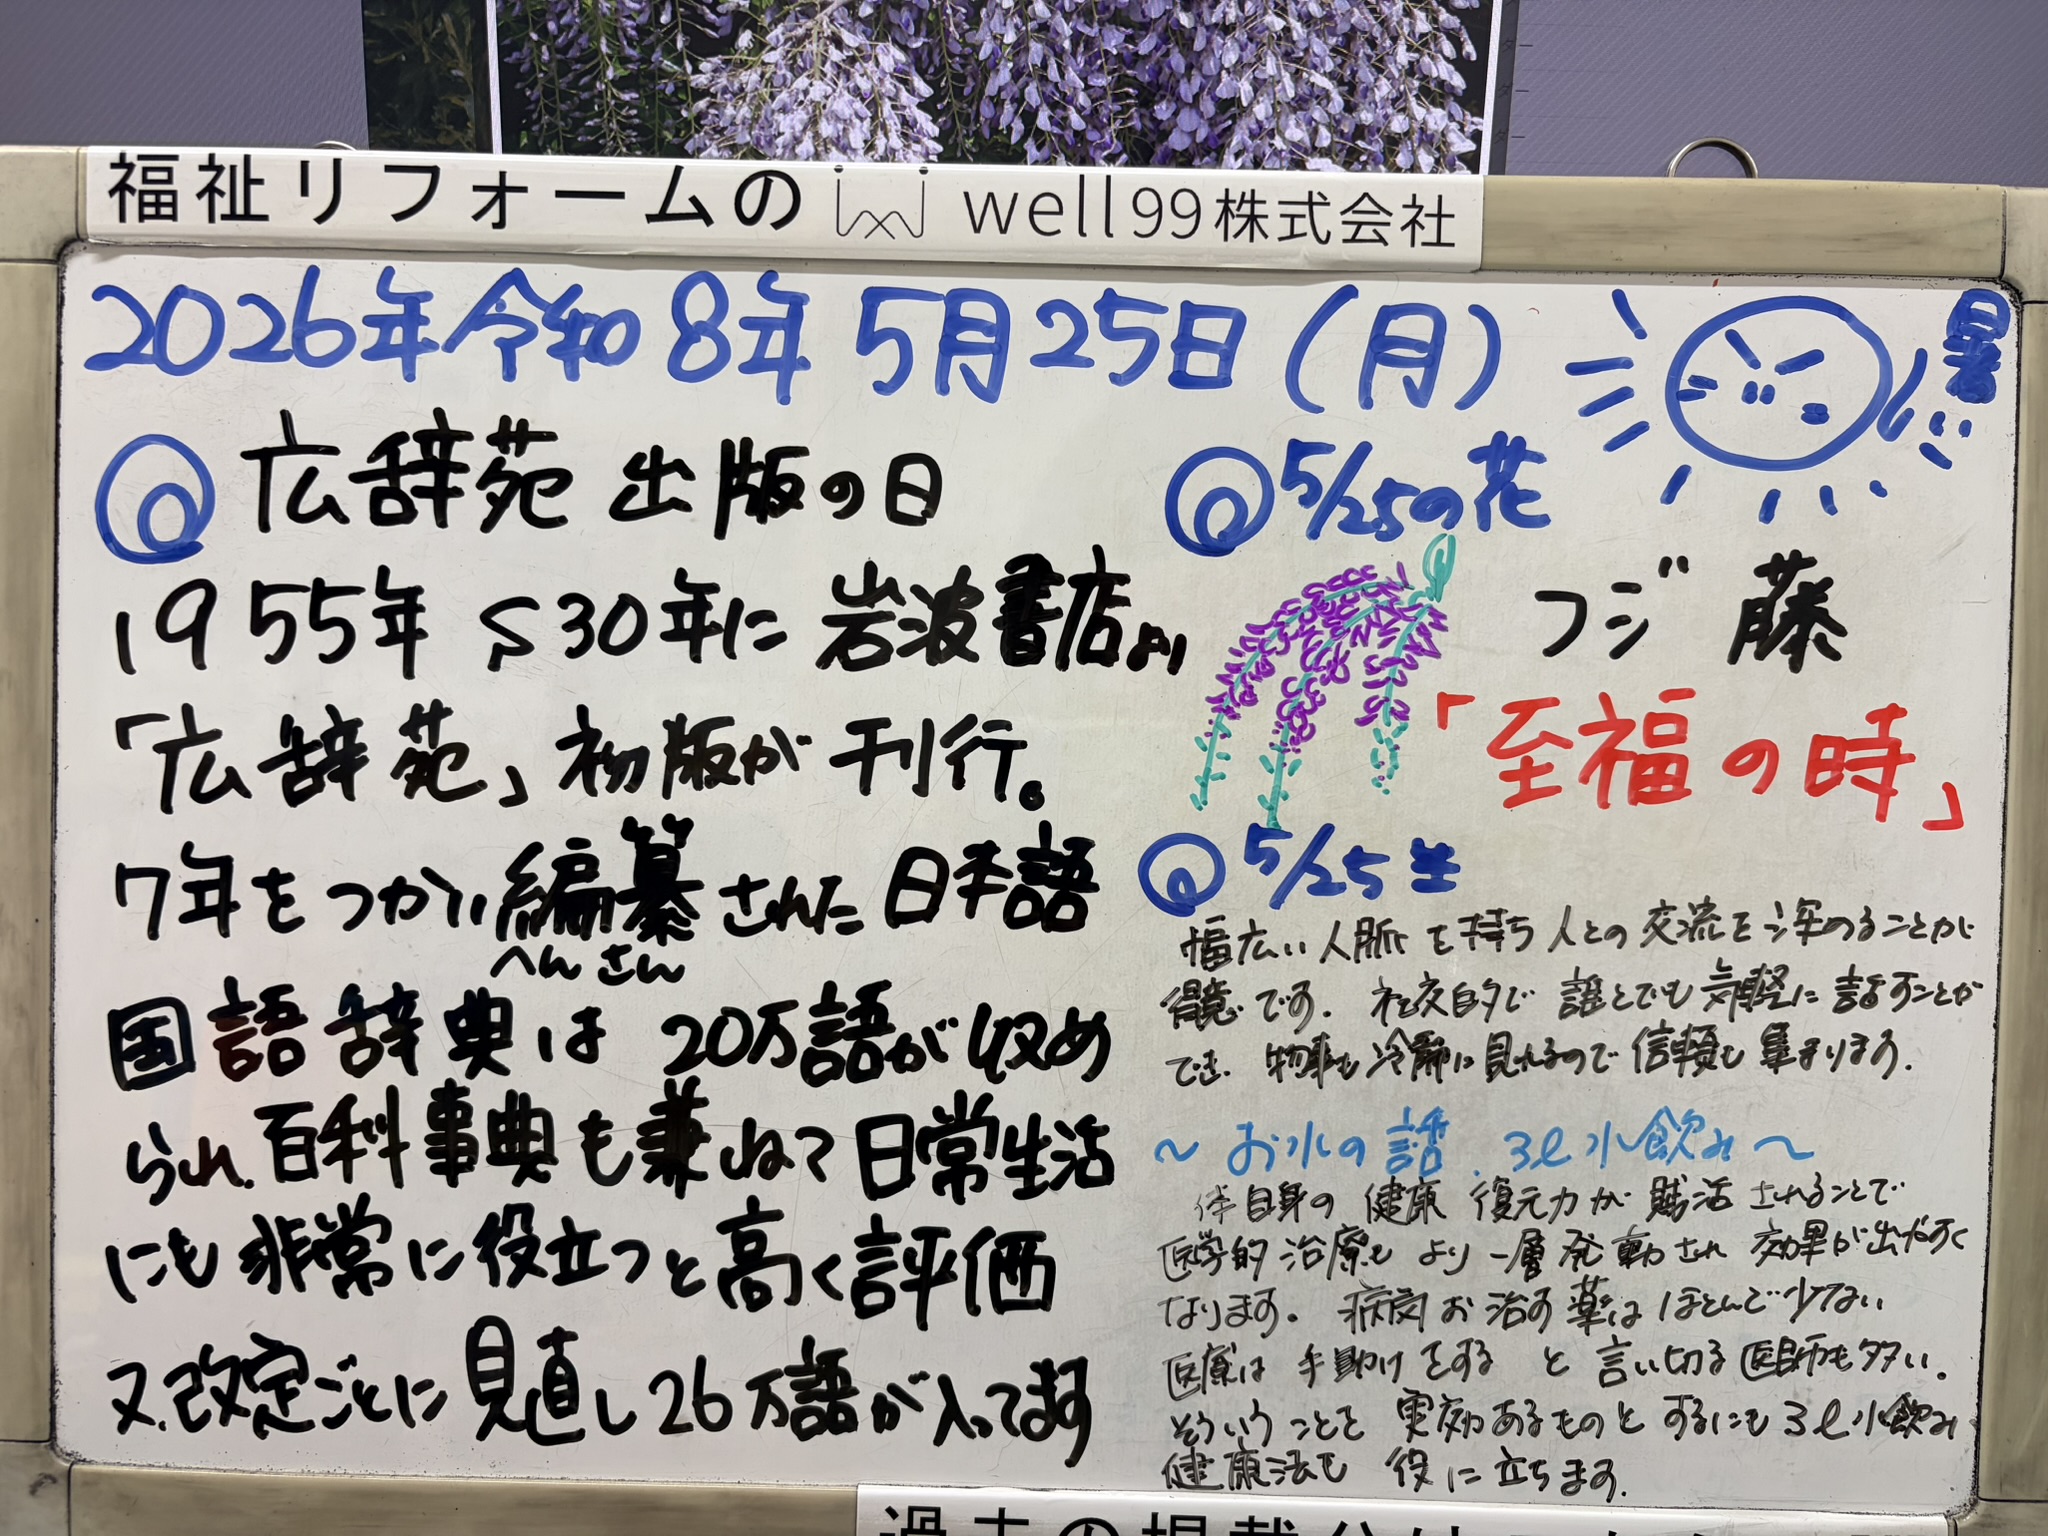 福祉リフォームの well99株式会社
2026年令和8年 5月25日(月)
暑
広辞苑 出版の日
1955年 S30年に 岩波書店より
「広辞苑」初版が 刊行。
7年をつかい編纂された日本語
へんさん
国語辞典は 20万語が収め
られ、百科事典も兼ねて日常生活
にも非常に役立つと高く評価
又、改定ごとに見直し26万語が入ってます
5/25の花
フジ 藤
「至福の時」
5/25生
幅広い人脈を持ち人との交流を深めることが
得意です。社交的で誰とでも気軽に話すことが
でき、物事も冷静に見れるので信頼も集まります。
〜お水の話、3ℓ水飲み〜
体自身の健康復元力が賦活されることで
医学的治療もより一層発動され効果が出やすく
なります。病気を治す薬はほとんどで少ない
医療は手助けをすると言い切る医師も多い。
そういうことを実効あるものとするにも3ℓ水飲み
健康法も役に立ちます。